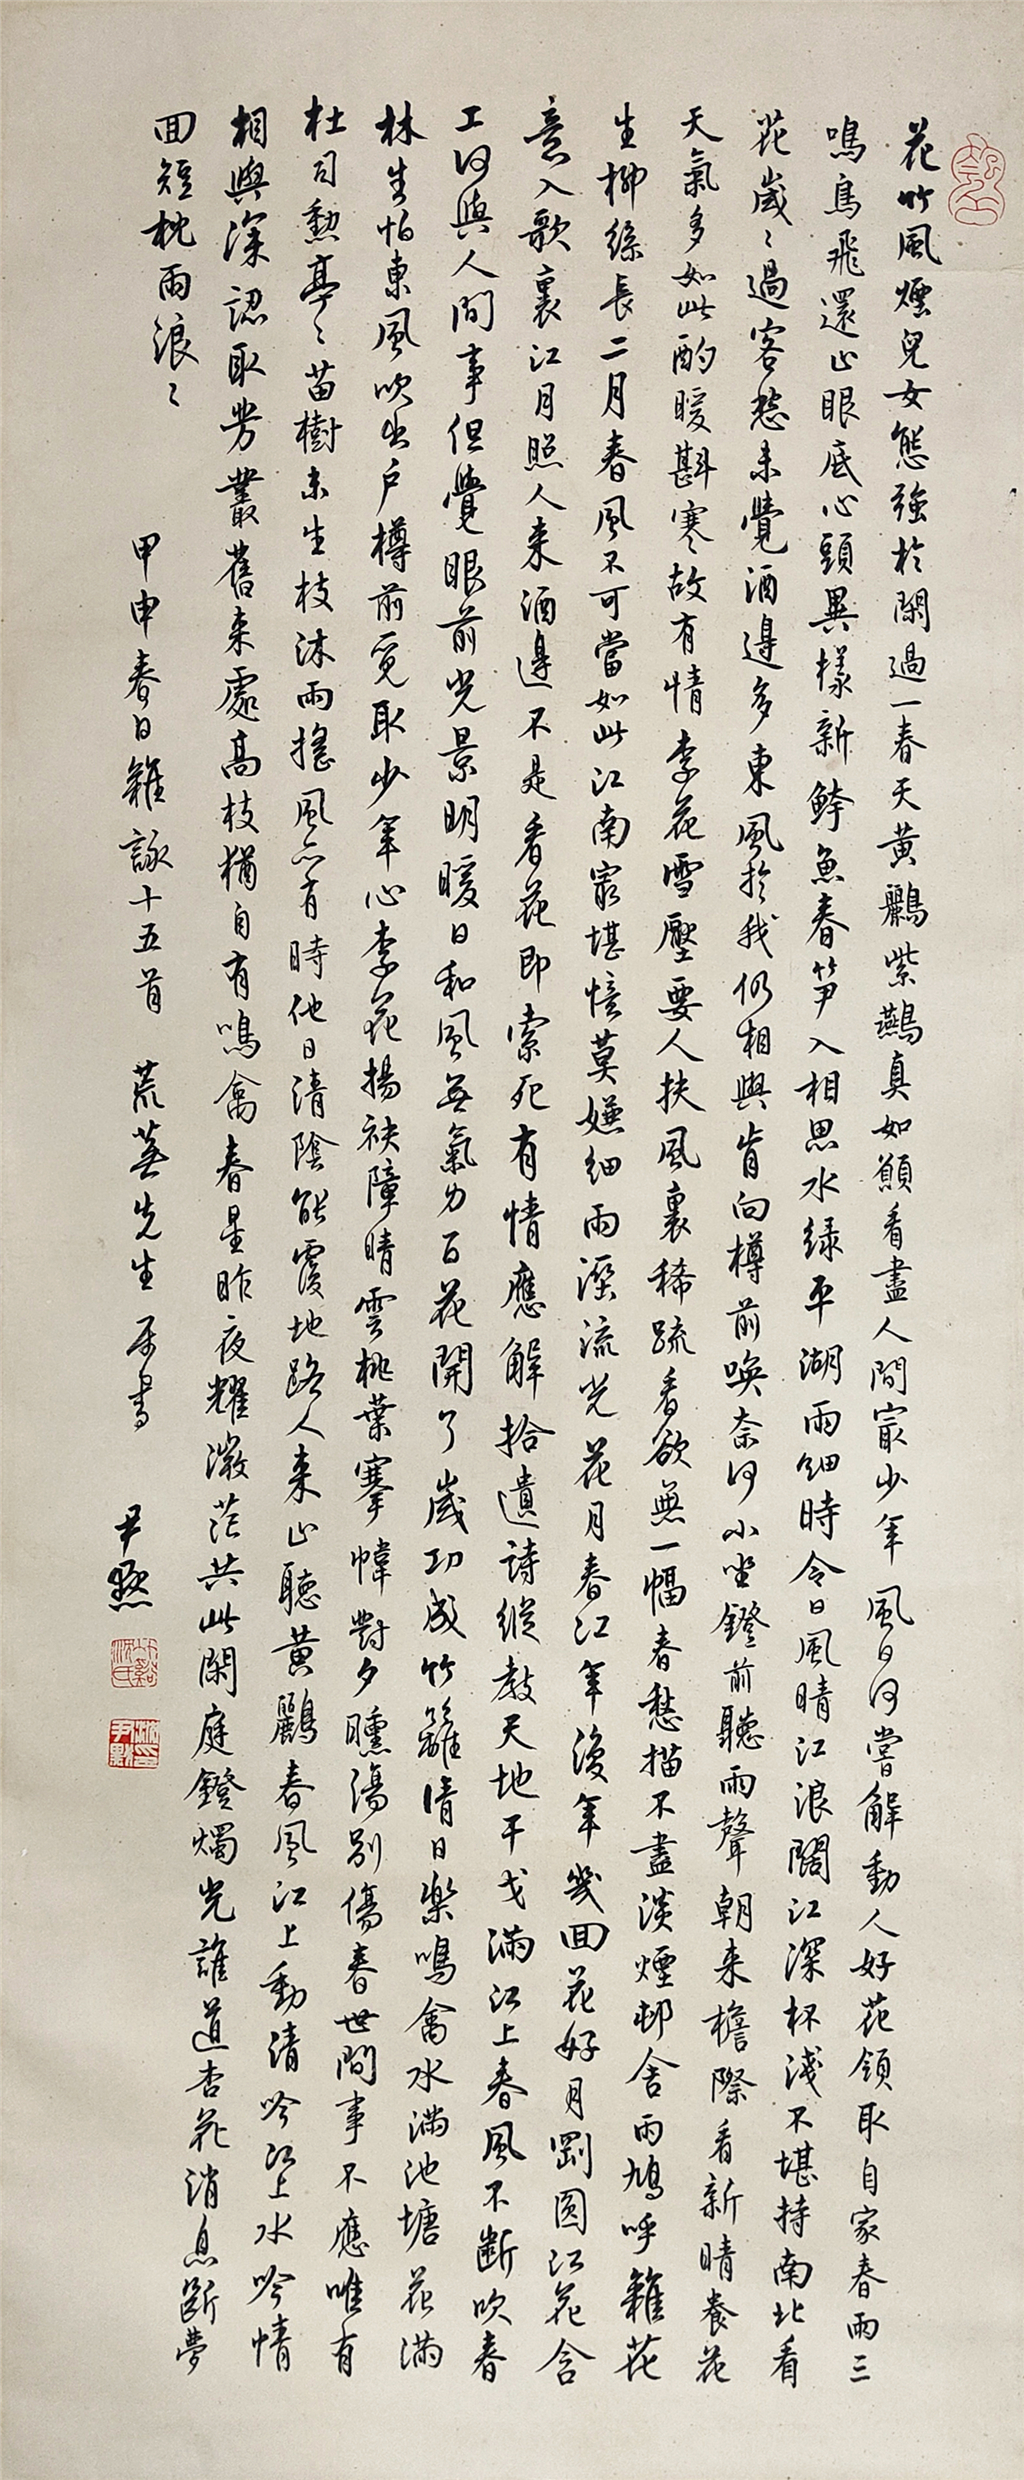 花竹風煙兒女態強於閑過一春天黄鸝紫鷰真如願看盡人間㝡少年風日何嘗解動人好花領取自家春雨三
鳴鳥飛還止眼底心頭異樣新魚春笋入相思水緑平湖雨細時令日風晴江浪闊江深杯淺不堪持南北看
花歲〻過客愁未覺酒邊多東風於我仍相與肯向樽前喚奈何小坐鐙前聽雨聲朝来檐際看新晴養花
天氣多如此酌暖斟寒故有情李花雪壓要人扶風裏稀疏看欲無一幅春愁描不盡淡煙邨舍雨鳩呼雜花
生柳絲長二月春風不可當如此江南㝡堪憶莫嫌細雨溼流光花月春江年復年幾回花好月剛圓江花含
意入歌裏江月照人来酒邊不是看花即索死有情應解拾遺詩縱教天地干戈滿江上春風不斷吹春
工何與人間事但覺眼前光景明暖日和風無氣力百花開了歲功成竹籬晴日樂鳴禽水滿池塘花滿
林生怕東風吹出户樽前覓取少年心李花揚袂障晴雲桃葉搴幃對夕曛傷别傷春世間事不應唯有
杜司勲亭〻苗樹未生枝沐雨搖風亦有時他日清陰能覆地路人来止聽黄鸝春風江上動清吟江上水吟情
相與深認取芳叢舊来處高枝猶自有鳴禽春星昨夜耀微茫共此閑庭鐙燭光誰道杏花消息斷夢
回短枕雨浪〻
甲申春日雜詠十五首 荒蕪先生属書
尹默
竹谿沈氏
沈尹默